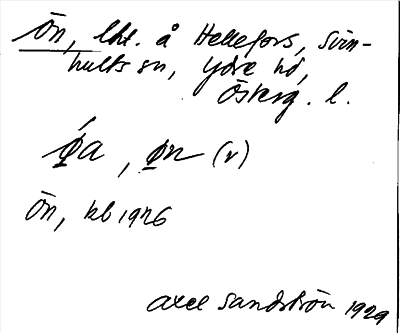 Ön, lht. å Hellefors, Svin-
hults sn, Ydre hd,
Österg. l.
ǿ̱a, ø̱n (v)
Ön, kb 1926
Axel Sandström 1929